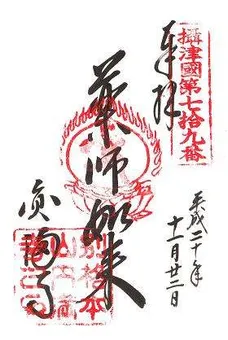 攝津國第七拾九番
奉拝
薬師如来
平成二十年
十一月廿二日
別格本